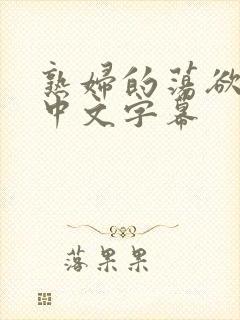 熟婦的蕩欲
中文字幕
落果果